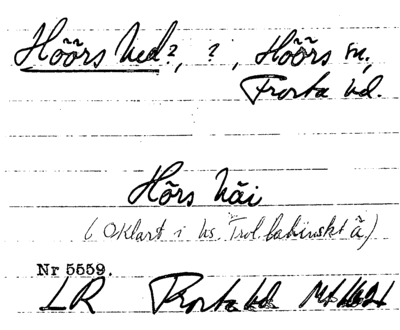 Höörs hed?, ?, Höörs sn.,
Frosta hd.
Hörs häi
(Oklart i hs. Trol.
Nr 5559.
LR Frosta hd